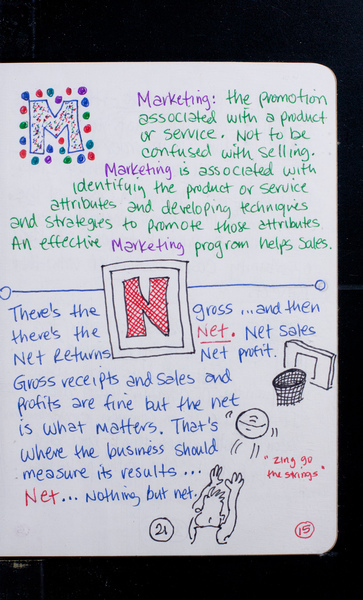 M
Marketing: the promotion
associated with a product
or service. Not to be
confused with selling.
Marketing is associated with
identifying the product or service
attributes and developing techniques
and strategies to promote those attributes.
An effective Marketing program helps sales.
N
There's the gross ... and then
there's the Net. Net sales
Net Returns Net profit.
Gross receipts and sales and
profits are fine but the net
is what matters. That's
where the business should
measure its results...
Net... Nothing but net.
"Zing go
the strings"
21
15